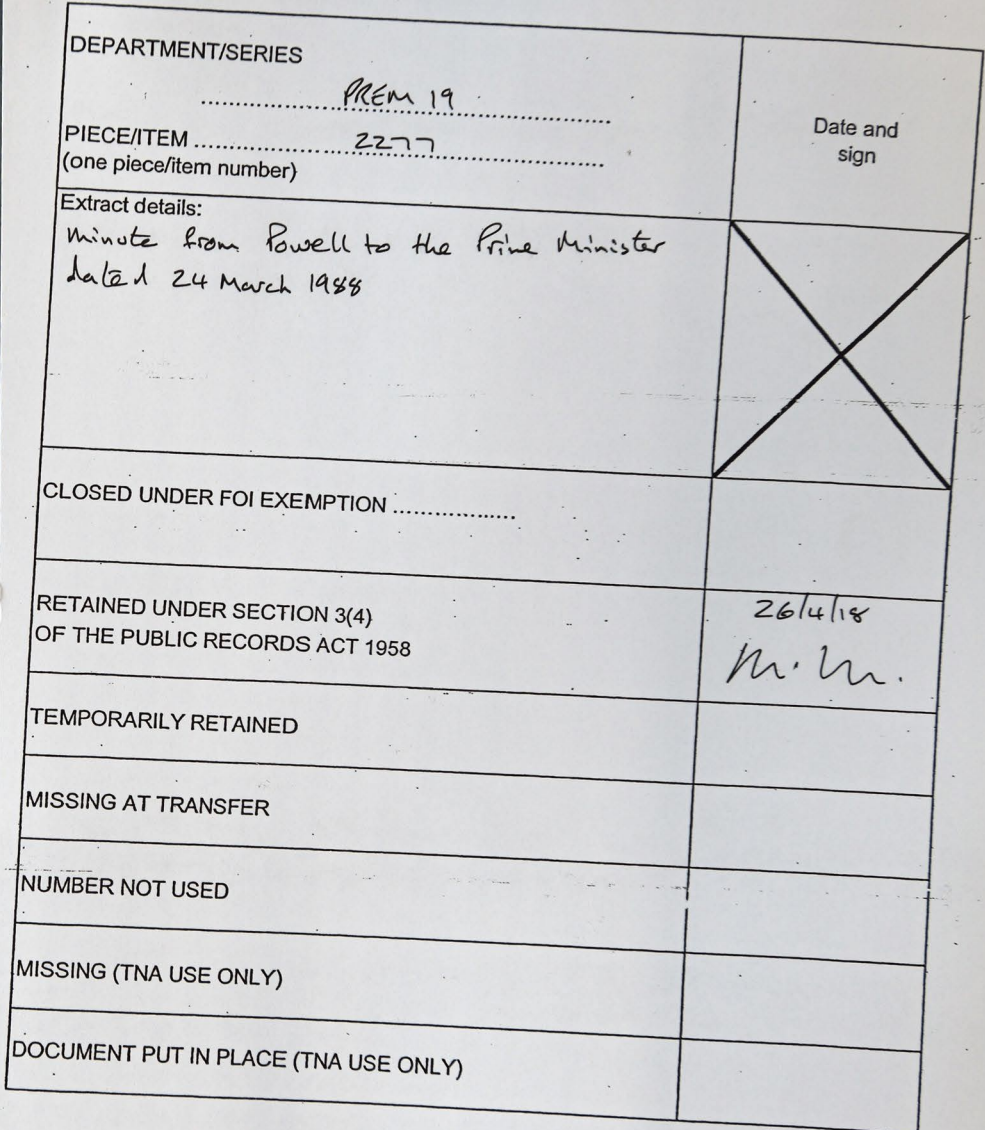 DEPARTMENT/SERIES
PREM 19
Date and
sign
PIECE/ITEM 2277
(one piece/item number)
Extract details:
Minute from Powell to the Prime Minister
dated 24 March 1988
CLOSED UNDER FOI EXEMPTION
RETAINED UNDER SECTION 3(4)
OF THE PUBLIC RECORDS ACT 1958
26/4/18
M. M.
TEMPORARILY RETAINED
MISSING AT TRANSFER
NUMBER NOT USED
MISSING (TNA USE ONLY)
DOCUMENT PUT IN PLACE (TNA USE ONLY)